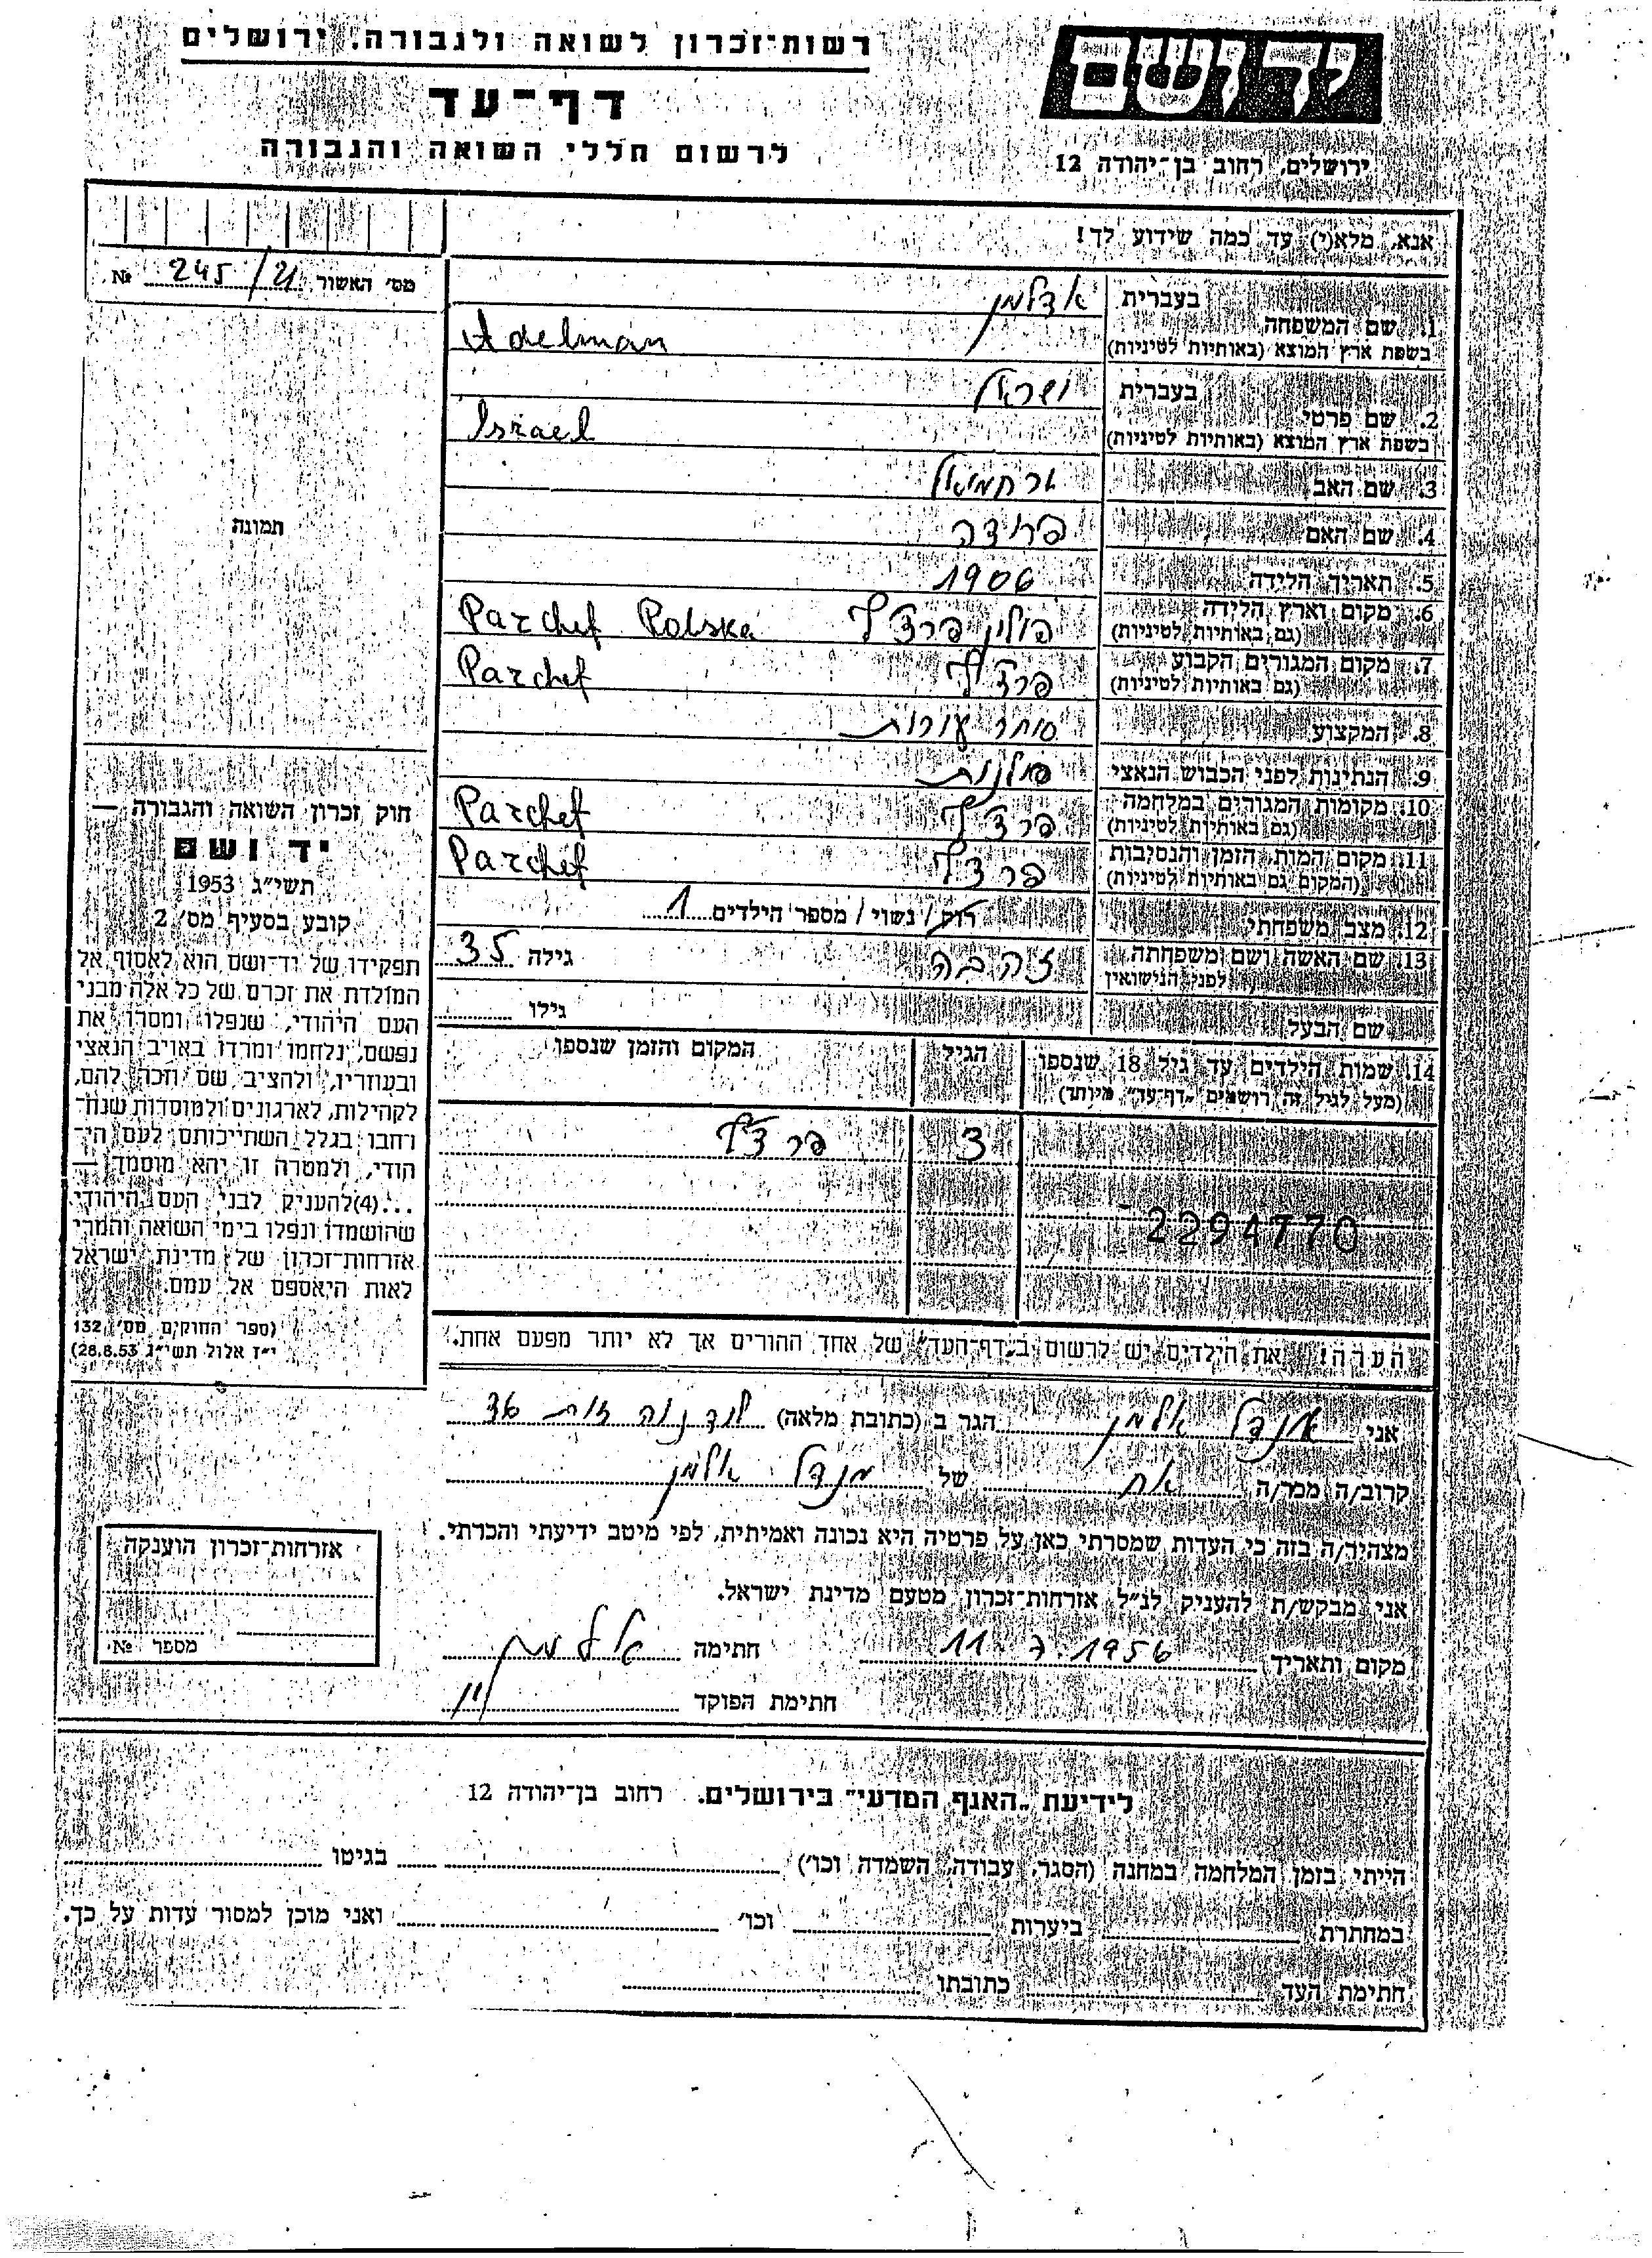 רשות־זכרון לשואה ולגבורה, ירושלים
יד ושם
דף־עד
לרשום חללי השואה והגבורה
ירושלים, רחוב בן־יהודה 12
אנא, מלא(י) עד כמה שידוע לך!
מס׳ האשור 245/21 №
1. שם המשפחה
בעברית אדלמן
בשפת ארץ המוצא (באותיות לטיניות) Adelman
2. שם פרטי
בעברית ישראל
בשפת ארץ המוצא (באותיות לטיניות) Israel
3. שם האב ירחמיאל
4. שם האם פרידה
5. תאריך הלידה 1906
6. מקום וארץ הלידה
(גם באותיות לטיניות) פולין פרצ'ף Parchef Polska
7. מקום המגורים הקבוע
(גם באותיות לטיניות) פרצ'ף Parchef
8. המקצוע סוחר עורות
9. הנתינות לפני הכבוש הנאצי פולנית
10. מקומות המגורים במלחמה
(גם באותיות לטיניות) פרצ'ף Parchef
11. מקום המות, הזמן והנסיבות
(המקום גם באותיות לטיניות) פרצ'ף Parchef
12. מצב משפחתי רווק / נשוי / מספר הילדים 1
13. שם האשה ושם משפחתה
לפני הנישואין זהבה גילה 35
שם הבעל גילו
14. שמות הילדים עד גיל 18 שנספו הגיל המקום והזמן שנספו
(מעל לגיל זה רושמים „דף־עד" מיוחד)
3 פרצ'ף
2294770
הערה! את הילדים יש לרשום ב„דף־העד" של אחד ההורים אך לא יותר מפעם אחת.
תמונה
חוק זכרון השואה והגבורה —
יד ושם
תשי״ג 1953
קובע בסעיף מס׳ 2
תפקידו של יד־ושם הוא לאסוף אל
המולדת את זכרם של כל אלה מבני
העם היהודי, שנפלו ומסרו את
נפשם, נלחמו ומרדו באויב הנאצי
ובעוזריו, ולהציב שם וזכר להם,
לקהילות, לארגונים ולמוסדות שנח־
רבו בגלל השתייכותם לעם הי־
הודי, ולמטרה זו יהא מוסמך —
...(4) להעניק לבני העם היהודי
שהושמדו ונפלו בימי השואה והמרי
אזרחות־זכרון של מדינת ישראל
לאות היאספם אל עמם.
(ספר החוקים מס׳ 132
י״ז אלול תשי״ג 28.8.53)
אני מנדל אלמן הגר ב (כתובת מלאה)
קרוב/ה מכר/ה אח של מנדל אלמן
מצהיר/ה בזה כי העדות שמסרתי כאן על פרטיה היא נכונה ואמיתית, לפי מיטב ידיעתי והכרתי.
אני מבקש/ת להעניק לנ״ל אזרחות־זכרון מטעם מדינת ישראל.
מקום ותאריך 11.7.1956 חתימה אלמן
חתימת הפוקד
אזרחות־זכרון הוענקה
מספר №
לידיעת „האגף המדעי" בירושלים. רחוב בן־יהודה 12
הייתי בזמן המלחמה במחנה (הסגר, עבודה, השמדה וכו׳) בגיטו
במחתרת ביערות וכו׳ ואני מוכן למסור עדות על כך.
חתימת העד כתובתו